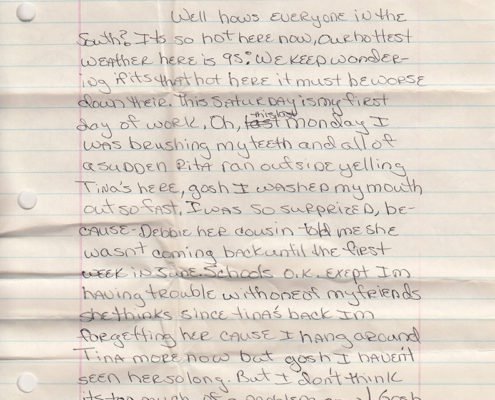 Well hows everyone in the
South? Its so hot here now, our hottest
weather here is 95° We keep wonder-
ing if its that hot here it must be worse
down their. This Saturday is my first
day of work. Oh, last this last monday I
was brushing my teeth and all of
a sudden Rita ran outside yelling
Tina's here, gosh I washed my mouth
out so fast. I was so surprized, be-
cause Debbie her cousin told me she
wasn't coming back until the first
week in June. Schools O.K. exept Im
having trouble with one of my friends
she thinks since Tina's back Im
forgetting her cause I hang around
Tina more now but gosh I haven't
seen her so long. But I don't think
its too much of a problem Gosh